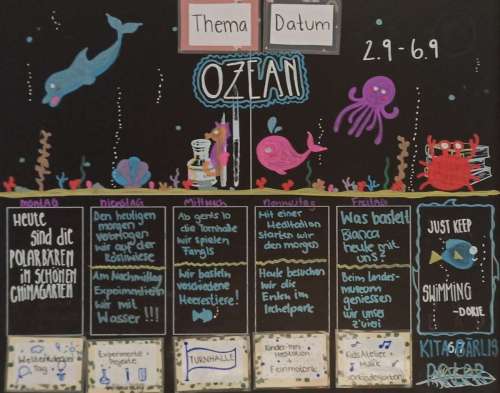 Thema
Datum
OZEAN
2.9 - 6.9
MONTAG
DIENSTAG
MITTWOCH
DONNERSTAG
FREITAG
HEUTE
sind die
POLARBÄREN
im SCHÖNEN
CHINAGARTEN
Den heutigen
morgen
verbringen
wir auf der
Röslwiese
Am Nachmittag
Experimentieren
wir mit
Wasser!!!
Ab gehts in
die Turnhalle
wir spielen
Fangis
Wir basteln
verschiedene
Meerestiere!
Mit einer
Meditation
starten wir
den morgen
Heute besuchen
wir die
Enten im
Was bastelt
Bianca
heute mit
uns?
Beim Landes-
museum
geniessen
wir unser
Z'vieri
JUST KEEP
SWIMMING
- DORIE
KITA BÄRLIS
Tag
Experimente
TURNHALLE
Kinder-
Meditation
+
Feinmotorik
Kids Atelier
+
Musik